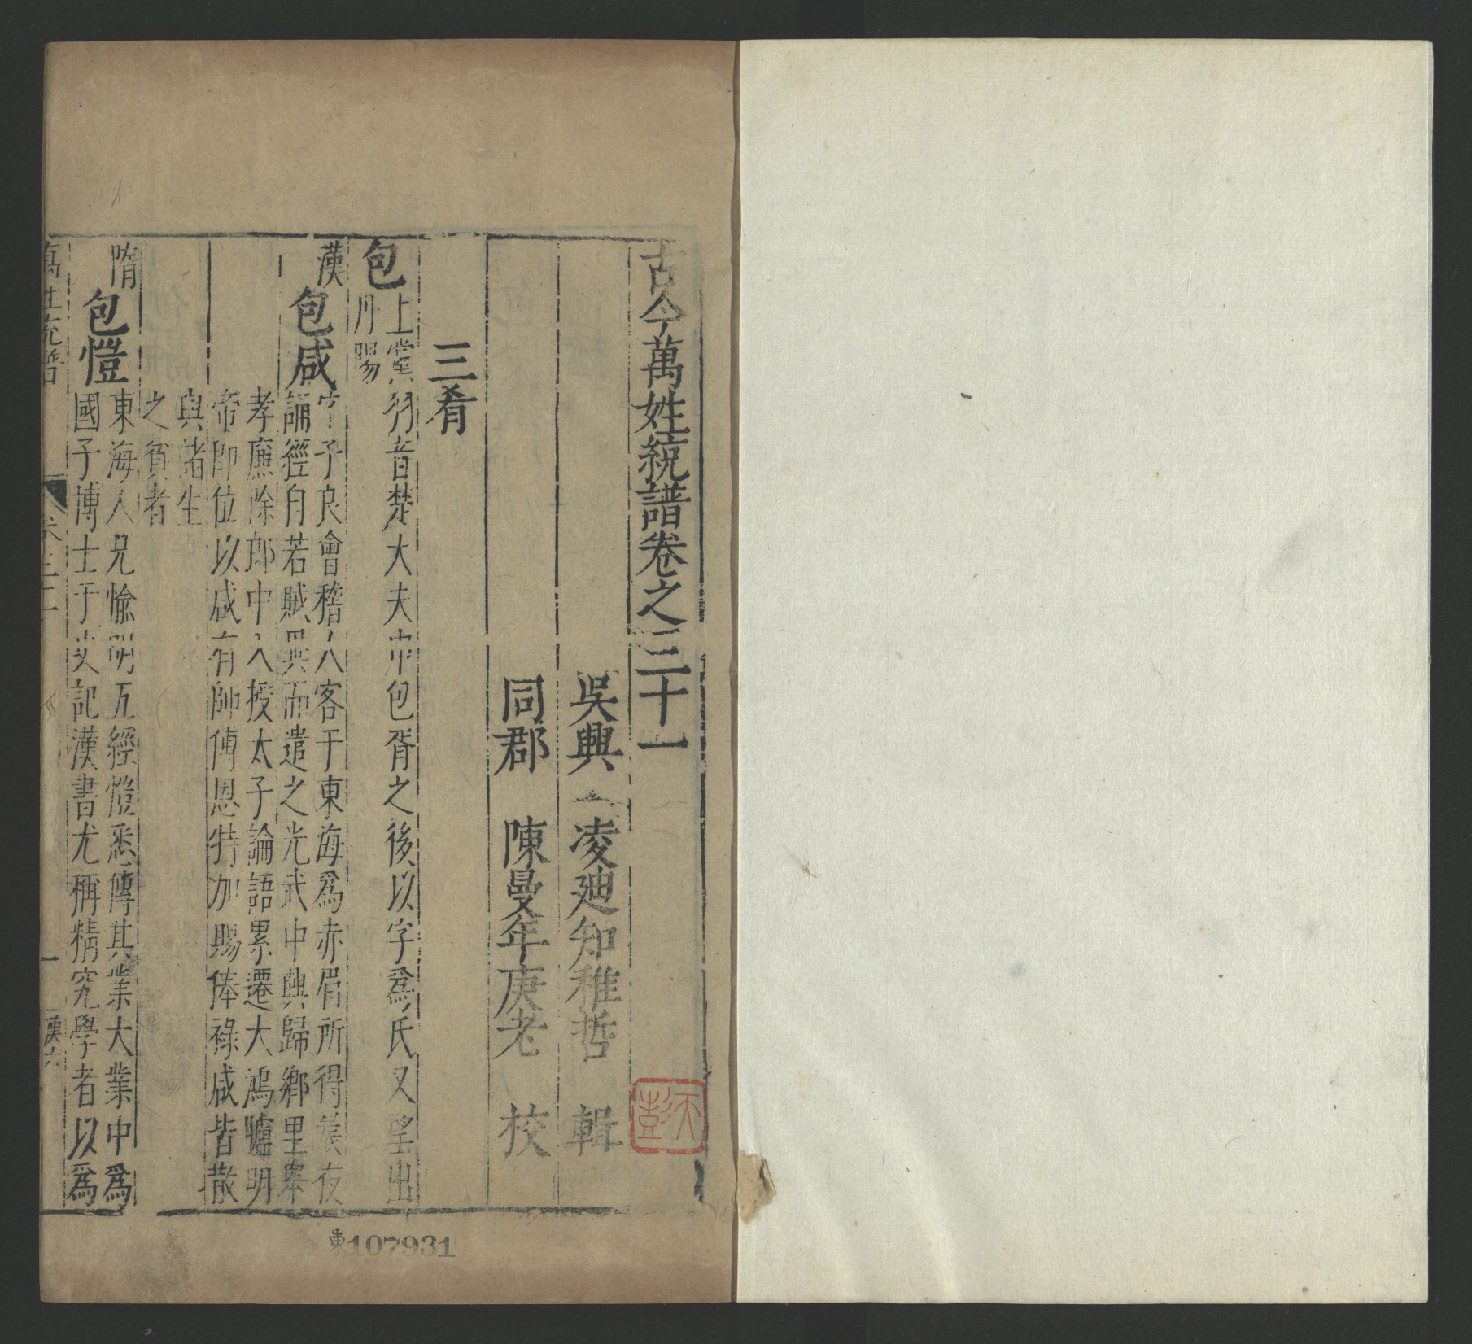 古今萬姓統譜卷之三十一
吳興 凌迪知稚哲 輯
同郡 陳曼年庚老 校
三肴
包 上黨羽音楚大夫申包胥之後以字爲氏又望出
丹陽
漢 包咸 字子良會稽人客于東海爲赤眉所得羨夜
誦經自若賊異而遣之光武中興歸鄉里舉
孝廉除郎中入授太子論語累遷大鴻臚明
帝即位以咸有師傅恩特加賜俸祿咸皆散
與諸生
之貧者
隋 包愷 東海人兄愉明五經愷悉傳其業大業中爲
國子博士于史記漢書尤稱精究學者以爲
萬姓統譜 卷三十一 一
107931